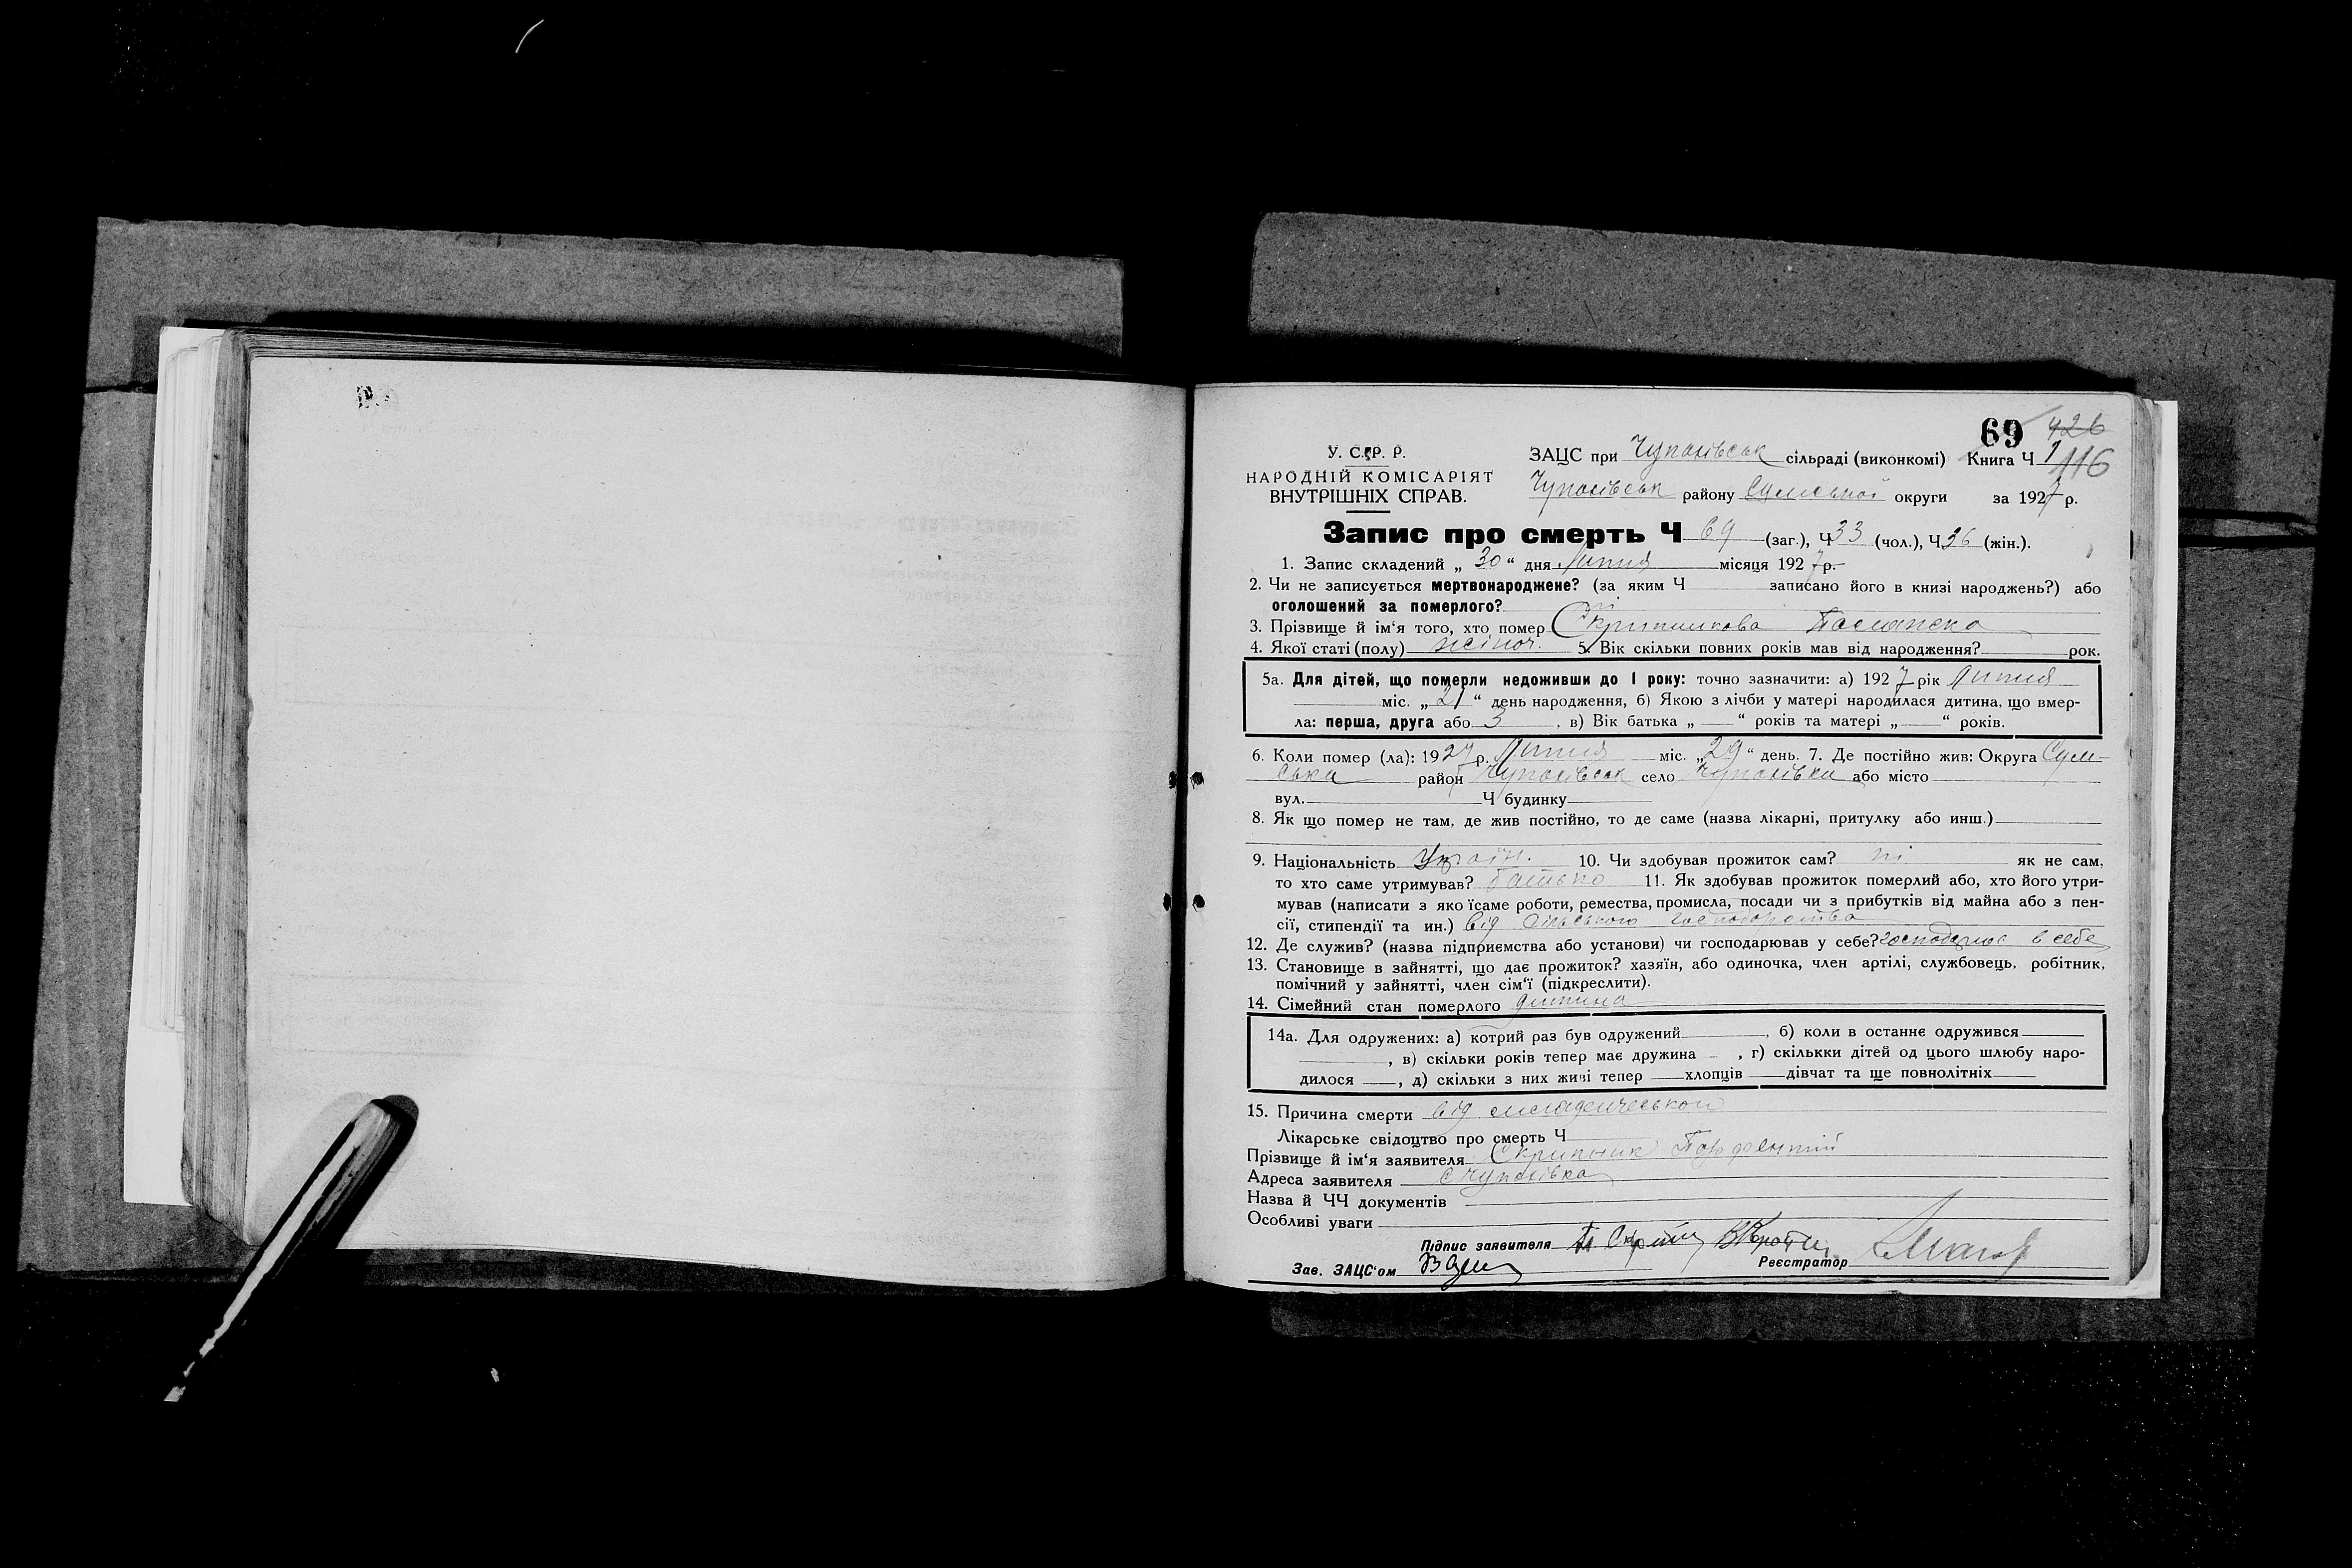 69 426
У. С. Р. Р.
ЗАЦС при Чупахівськ сільраді (виконкомі) Книга Ч 1 116
НАРОДНІЙ КОМІСАРІЯТ
ВНУТРІШНІХ СПРАВ.
Чупахівськ району Сумської округи за 1927 р.
Запис про смерть Ч 69 (заг.), Ч 33 (чол.), Ч 36 (жін.).
1. Запис складений „ 30 “ дня Липня місяця 1927 р.
2. Чи не записується мертвонароджене? (за яким Ч записано його в книзі народжень?) або
оголошений за померлого?
3. Прізвище й ім‘я того, хто помер Скрипникова
4. Якої статі (полу) жіноч. 5. Вік скільки повних років мав від народження? рок.
5а. Для дітей, що померли недоживши до 1 року: точно зазначити: а) 1927 рік Липня
міс. „ 21 “ день народження, б) Якою з лічби у матері народилася дитина, що вмер-
ла: перша, друга або 3 , в) Вік батька „ — “ років та матері „ — “ років.
6. Коли помер (ла): 1927 р. Липня міс. „ 29 “ день. 7. Де постійно жив: Округа Сум-
ська район Чупахівськ село Чупахівка або місто
вул. Ч будинку
8. Як що помер не там, де жив постійно, то де саме (назва лікарні, притулку або инш.)
9. Національність Україн. 10. Чи здобував прожиток сам? ні як не сам,
то хто саме утримував? батько 11. Як здобував прожиток померлий або, хто його утри-
мував (написати з яко їсаме роботи, ремества, промисла, посади чи з прибутків від майна або з пен-
сії, стипендії та ин.) від сільського господарства
12. Де служив? (назва підприємства або установи) чи господарював у себе? господарює в себе
13. Становище в зайнятті, що дає прожиток? хазяїн, або одиночка, член артілі, службовець, робітник,
помічний у зайнятті, член сім‘ї (підкреслити).
14. Сімейний стан померлого дитина
14а. Для одружених: а) котрий раз був одружений , б) коли в останнє одружився
, в) скільки років тепер має дружина – , г) скількки дітей од цього шлюбу наро-
дилося —, д) скільки з них живі тепер — хлопців — дівчат та ще повнолітніх
15. Причина смерти від младенчеського
Лікарське свідоцтво про смерть Ч
Прізвище й ім‘я заявителя Скрипник Порфентій
Адреса заявителя с Чупахівка
Назва й ЧЧ документів
Особливі уваги
Підпис заявителя
Зав. ЗАЦС‘ом Реєстратор